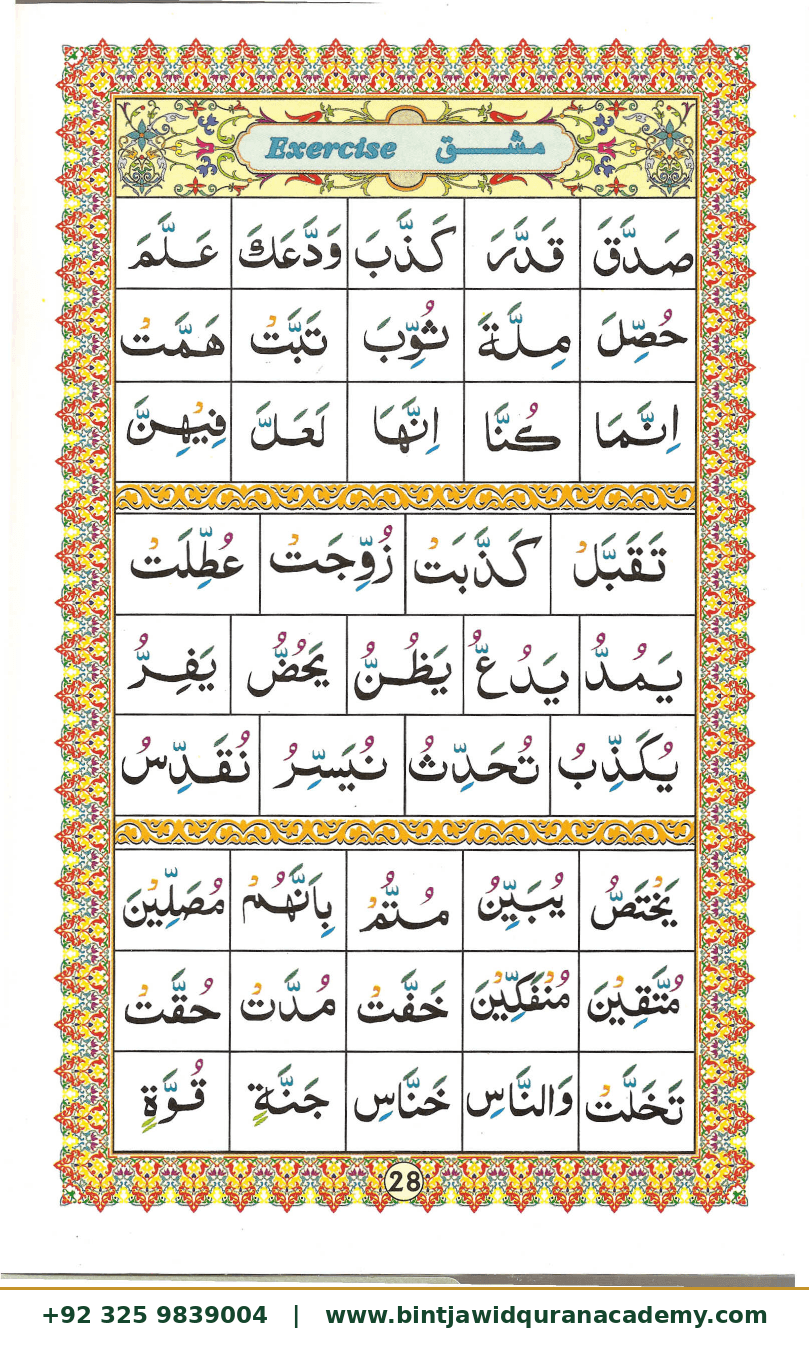 Exercise مشق
صَدَّقَ قَدَّرَ كَذَّبَ وَدَّعَكَ عَلَّمَ
حُصِّلَ مِلَّةَ ثُوِّبَ تَبَّتْ هَمَّتْ
اِنَّمَا كُنَّا اِنَّهَا لَعَلَّ فِيْهِنَّ
تَقَبَّلْ كَذَّبَتْ زُوِّجَتْ عُطِّلَتْ
يَمُدُّ يَدُعُّ يَظُنُّ يَحُضُّ يَفِرُّ
يُكَذِّبُ تُحَدِّثُ نُيَسِّرُ نُقَدِّسُ
يَخْتَصُّ يُبَيِّنُ مُتِمُّ بِاَنَّهُمْ مُصَلِّيْنَ
مُتَّقِيْنَ مُنْفَكِّيْنَ خَفَّتْ مُدَّتْ حُقَّتْ
تَخَلَّتْ وَالنَّاسِ خَنَّاسِ جَنَّةٍ قُوَّةٍ
28
+92 325 9839004 | www.bintjawidquranacademy.com